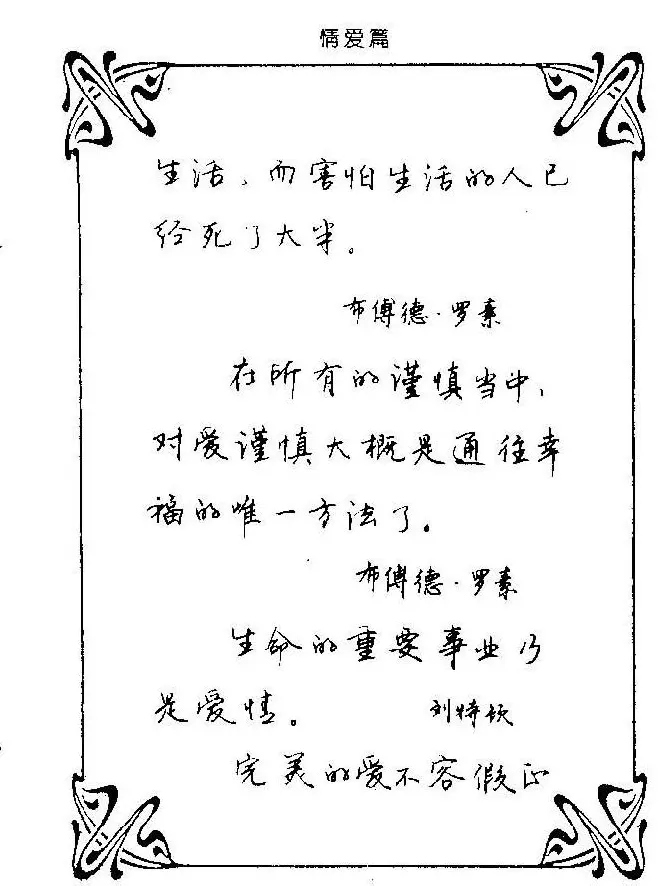 情爱篇
生活，而害怕生活的人已
经死了大半。
布傅德·罗素
在所有的谨慎当中，
对爱谨慎大概是通往幸
福的唯一方法了。
布傅德·罗素
生命的重要事业乃
是爱情。 刘特钦
完美的爱不容假正